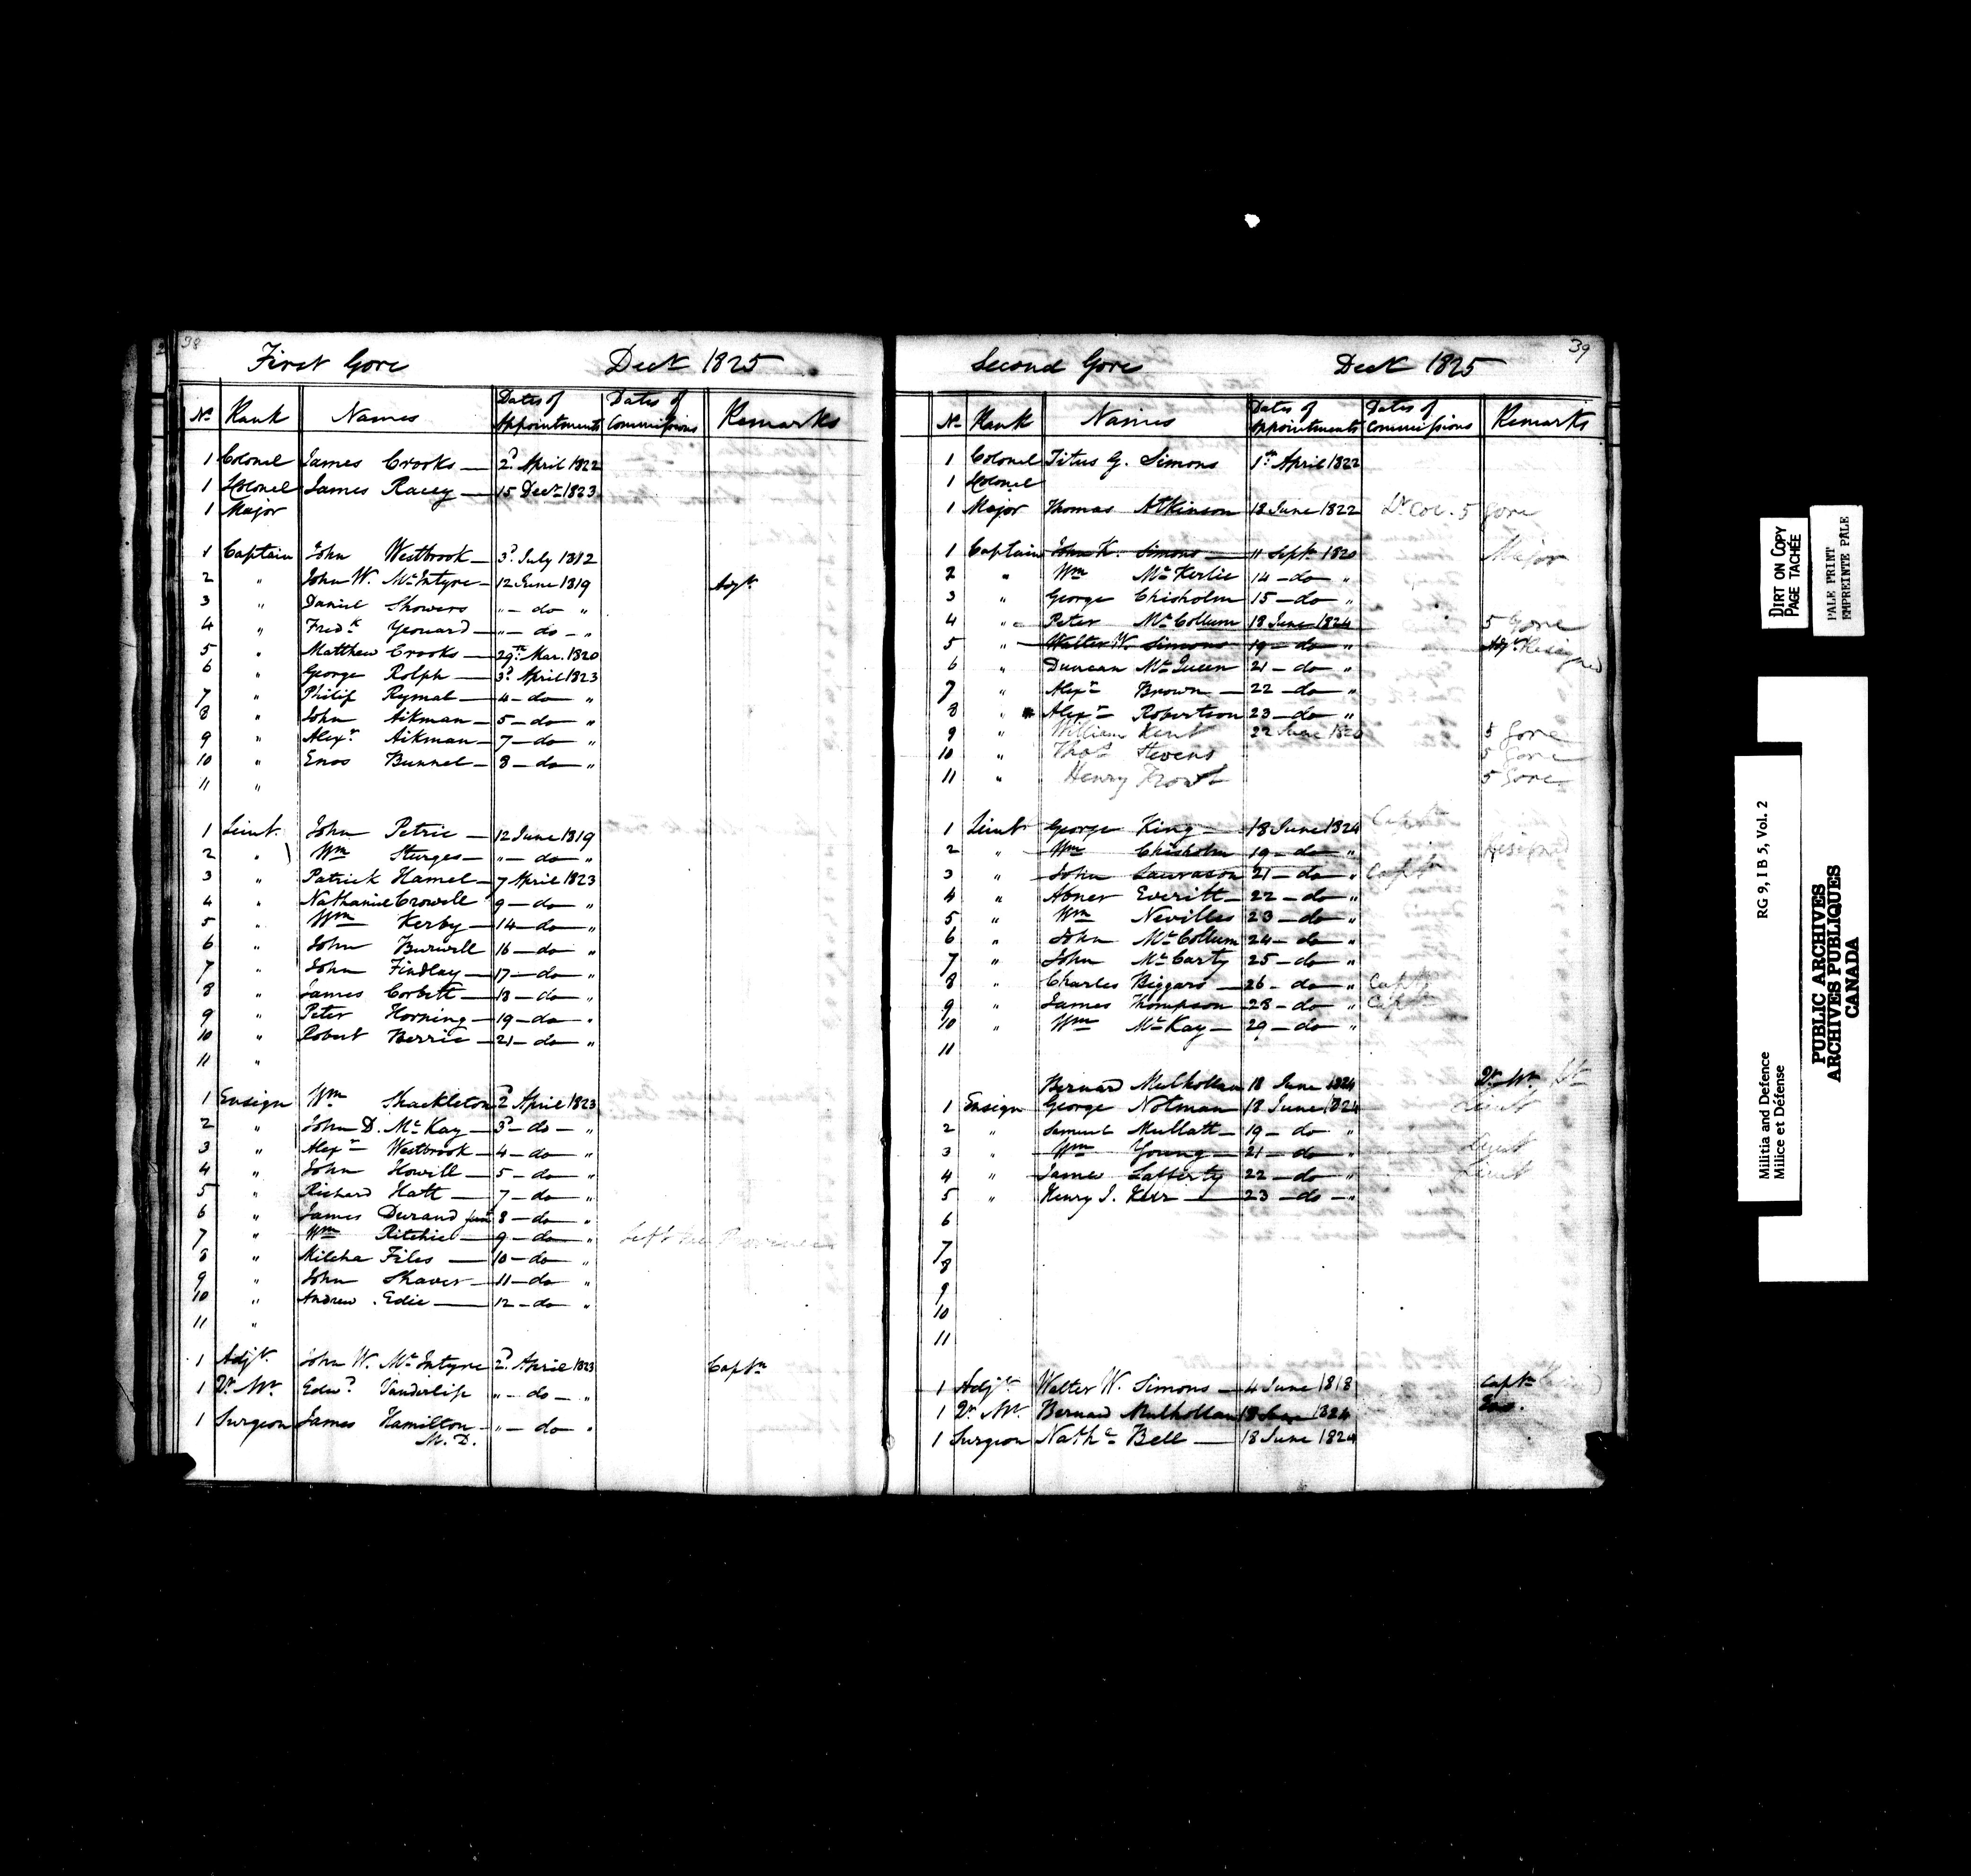 38
First Gore Decr 1825
No Rank Names Dates of Appointments Dates of Commissions Remarks
1 Colonel James Crooks — 2d April 1822
1 Lt Colonel James Racey — 15 Decr 1823
1 Major
1 Captain John Westbrook — 3d July 1812
2 " John W. McIntyre — 12 June 1819 Adjt
3 " Daniel Showers " — do "
4 " Fredk Yeoward — " — do — "
5 " Matthew Crooks — 29th Mar. 1820
6 " George Rolph — 3d April 1823
7 " Philip Rymal — 4 — do "
8 " John Aikman — 5 — do "
9 " Alexr Aikman — 7 — do "
10 " Enos Bunnel — 8 — do "
11 "
1 Lieut. John Petrie — 12 June 1819
2 " Wm Sturges — " — do — "
3 " Patrick Hamel — 7 April 1823
4 " Nathaniel Crowell 9 — do — "
5 " Wm Kerby — 14 — do "
6 " John Burwell 16 — do "
7 " John Findlay — 17 — do "
8 " James Corbett — 18 — do "
9 " Peter Horning — 19 — do "
10 " Robert Berrie — 21 — do "
11 "
1 Ensign Wm Shackleton 2d April 1823
2 " John D. McKay — 3d — do — "
3 " Alexr Westbrook — 4 — do "
4 " John Howill — 5 — do "
5 " Richard Hatt — 7 — do "
6 " James Durand junr 8 — do "
7 " Wm Ritchie — 9 — do " Left the Province
8 " Milcha Files — 10 — do "
9 " John Shaver — 11 — do "
10 " Andrew Edie — 12 — do "
11 "
1 Adjt. John W. McIntyre 2d April 1823 Captn
1 Qr Mr Edwd Vanderlip " — do — "
1 Surgeon James Hamilton — " — do "
M.D.
39
Second Gore Decr 1825
No Rank Names Dates of Appointments Dates of Commissions Remarks
1 Colonel Titus G. Simons 1st April 1822
1 Lt Colonel
1 Major Thomas Atkinson 18 June 1822 Lt Col. 5 Gore
1 Captain John K. Simons — 11 Sept. 1820 Major
2 " Wm McKerlie 14 — do "
3 " George Chisholm 15 — do "
4 " Peter McCollum 18 June 1824 5 Gore
5 " Walter W. Simons 19 — do " Adjt Resigned
6 " Duncan McQueen 21 — do "
7 " Alexr Brown — 22 — do "
8 " Alexr Robertson 23 — do "
9 William Kent 22 June 1820 5 Gore
10 " Thos Stevens 5 Gore
11 " Henry Frost 5 Gore
1 Lieut George King — 18 June 1824 Captn
2 " Wm Chisholm 19 — do " Resigned
3 " John Lawrason 21 — do " Captn
4 " Abner Everitt — 22 — do "
5 " Wm Nevilles 23 — do "
6 " John McCollum 24 — do "
7 " John McCarty 25 — do "
8 " Charles Biggars — 26 — do " Captn
9 " James Thompson — 28 — do " Captn
10 " Wm McKay — 29 — do "
11
Bernard Mulhollan 18 June 1824 Qr Mr
1 Ensign George Notman 18 June 1824 Lieut
2 " Samuel Mullatt — 19 — do "
3 " Wm Young — 21 — do " Lieut
4 " James Lafferty 22 — do " Lieut
5 " Henry J. Kerr — 23 — do — "
6
7
8
9
10
11
1 Adjt Walter W. Simons — 4 June 1818 Captn
1 Qr Mr. Bernard Mulhollan 18 June 1824 Ens.
1 Surgeon Nathl Bell — 18 June 1824
DIRT ON COPY
PAGE TACHÉE
PALE PRINT
EMPREINTE PALE
Militia and Defence RG 9, I B 5, Vol. 2
Milice et Défense
PUBLIC ARCHIVES
ARCHIVES PUBLIQUES
CANADA